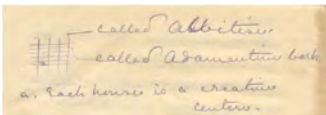 called Albitism
called Adamantine bath
a. Each house is a creative
centers.